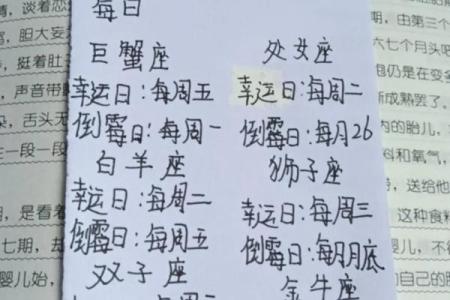 每日
巨蟹座
幸运日：每周五
倒霉日：每周一
白羊座
幸运日：每周二
倒霉日：每周五
双子座
处女座
幸运日：每周二
倒霉日：每月26
狮子座
幸运日：每周三
倒霉日：每月月底
金牛座
情，谈着恋
胆大妄
，挺着肚
，声音带
，舌头无
在一段一段
，是看着
七期，却
婴儿始，
期，由第三个
六七个月头
胞仍是在变
渐成熟罢了。
内的胎儿，
料和氧气，
，送给他
这种食料
，不
的自己的